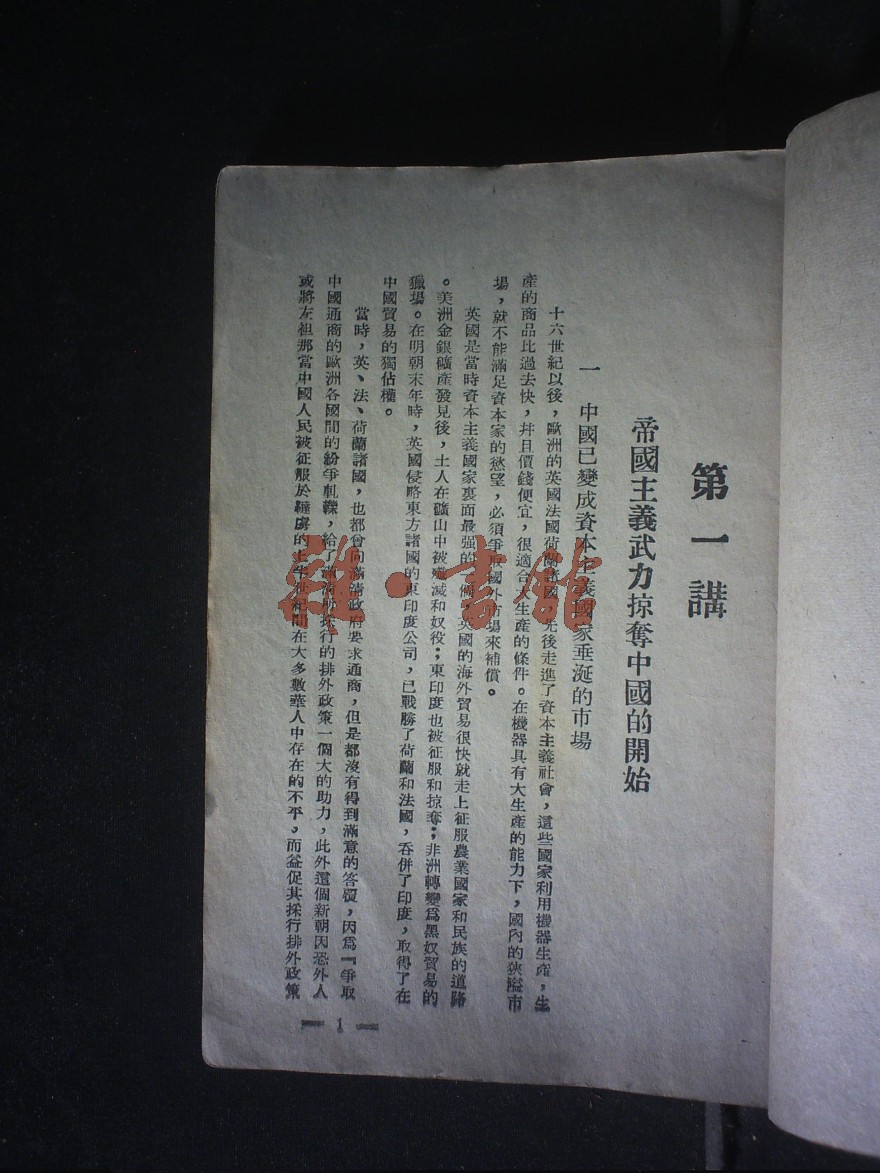 第一講
帝國主義武力掠奪中國的開始
一 中國已變成資本主義國家垂涎的市場
十六世紀以後，歐洲的英國法國荷蘭諸國先後走進了資本主義社會，這些國家利用機器生產，生
產的商品比過去快，幷且價錢便宜，很適合大生產的條件。在機器具有大生產的能力下，國內的狹隘市
場，就不能滿足資本家的慾望，必須爭取國外市場來補償。
英國是當時資本主義國家裏面最强的一個，英國的海外貿易很快就走上征服農業國家和民族的道路
。美洲金銀礦產發見後，土人在礦山中被殲滅和奴役；東印度也被征服和掠奪；非洲轉變爲黑奴貿易的
獵場。在明朝末年時，英國侵略東方諸國的東印度公司，已戰勝了荷蘭和法國，吞併了印度，取得了在
中國貿易的獨佔權。
當時，英、法、荷蘭諸國，也都會向滿淸政府要求通商，但是都沒有得到滿意的答覆，因爲『爭取
中國通商的歐洲各國間的紛爭軋轢，給了滿淸所採行的排外政策一個大的助力，此外這個新朝因恐外人
或將左袒那當中國人民被征服於韃虜的上半世紀間在大多數華人中存在的不平，而益促其採行排外政策
1
雜·書館